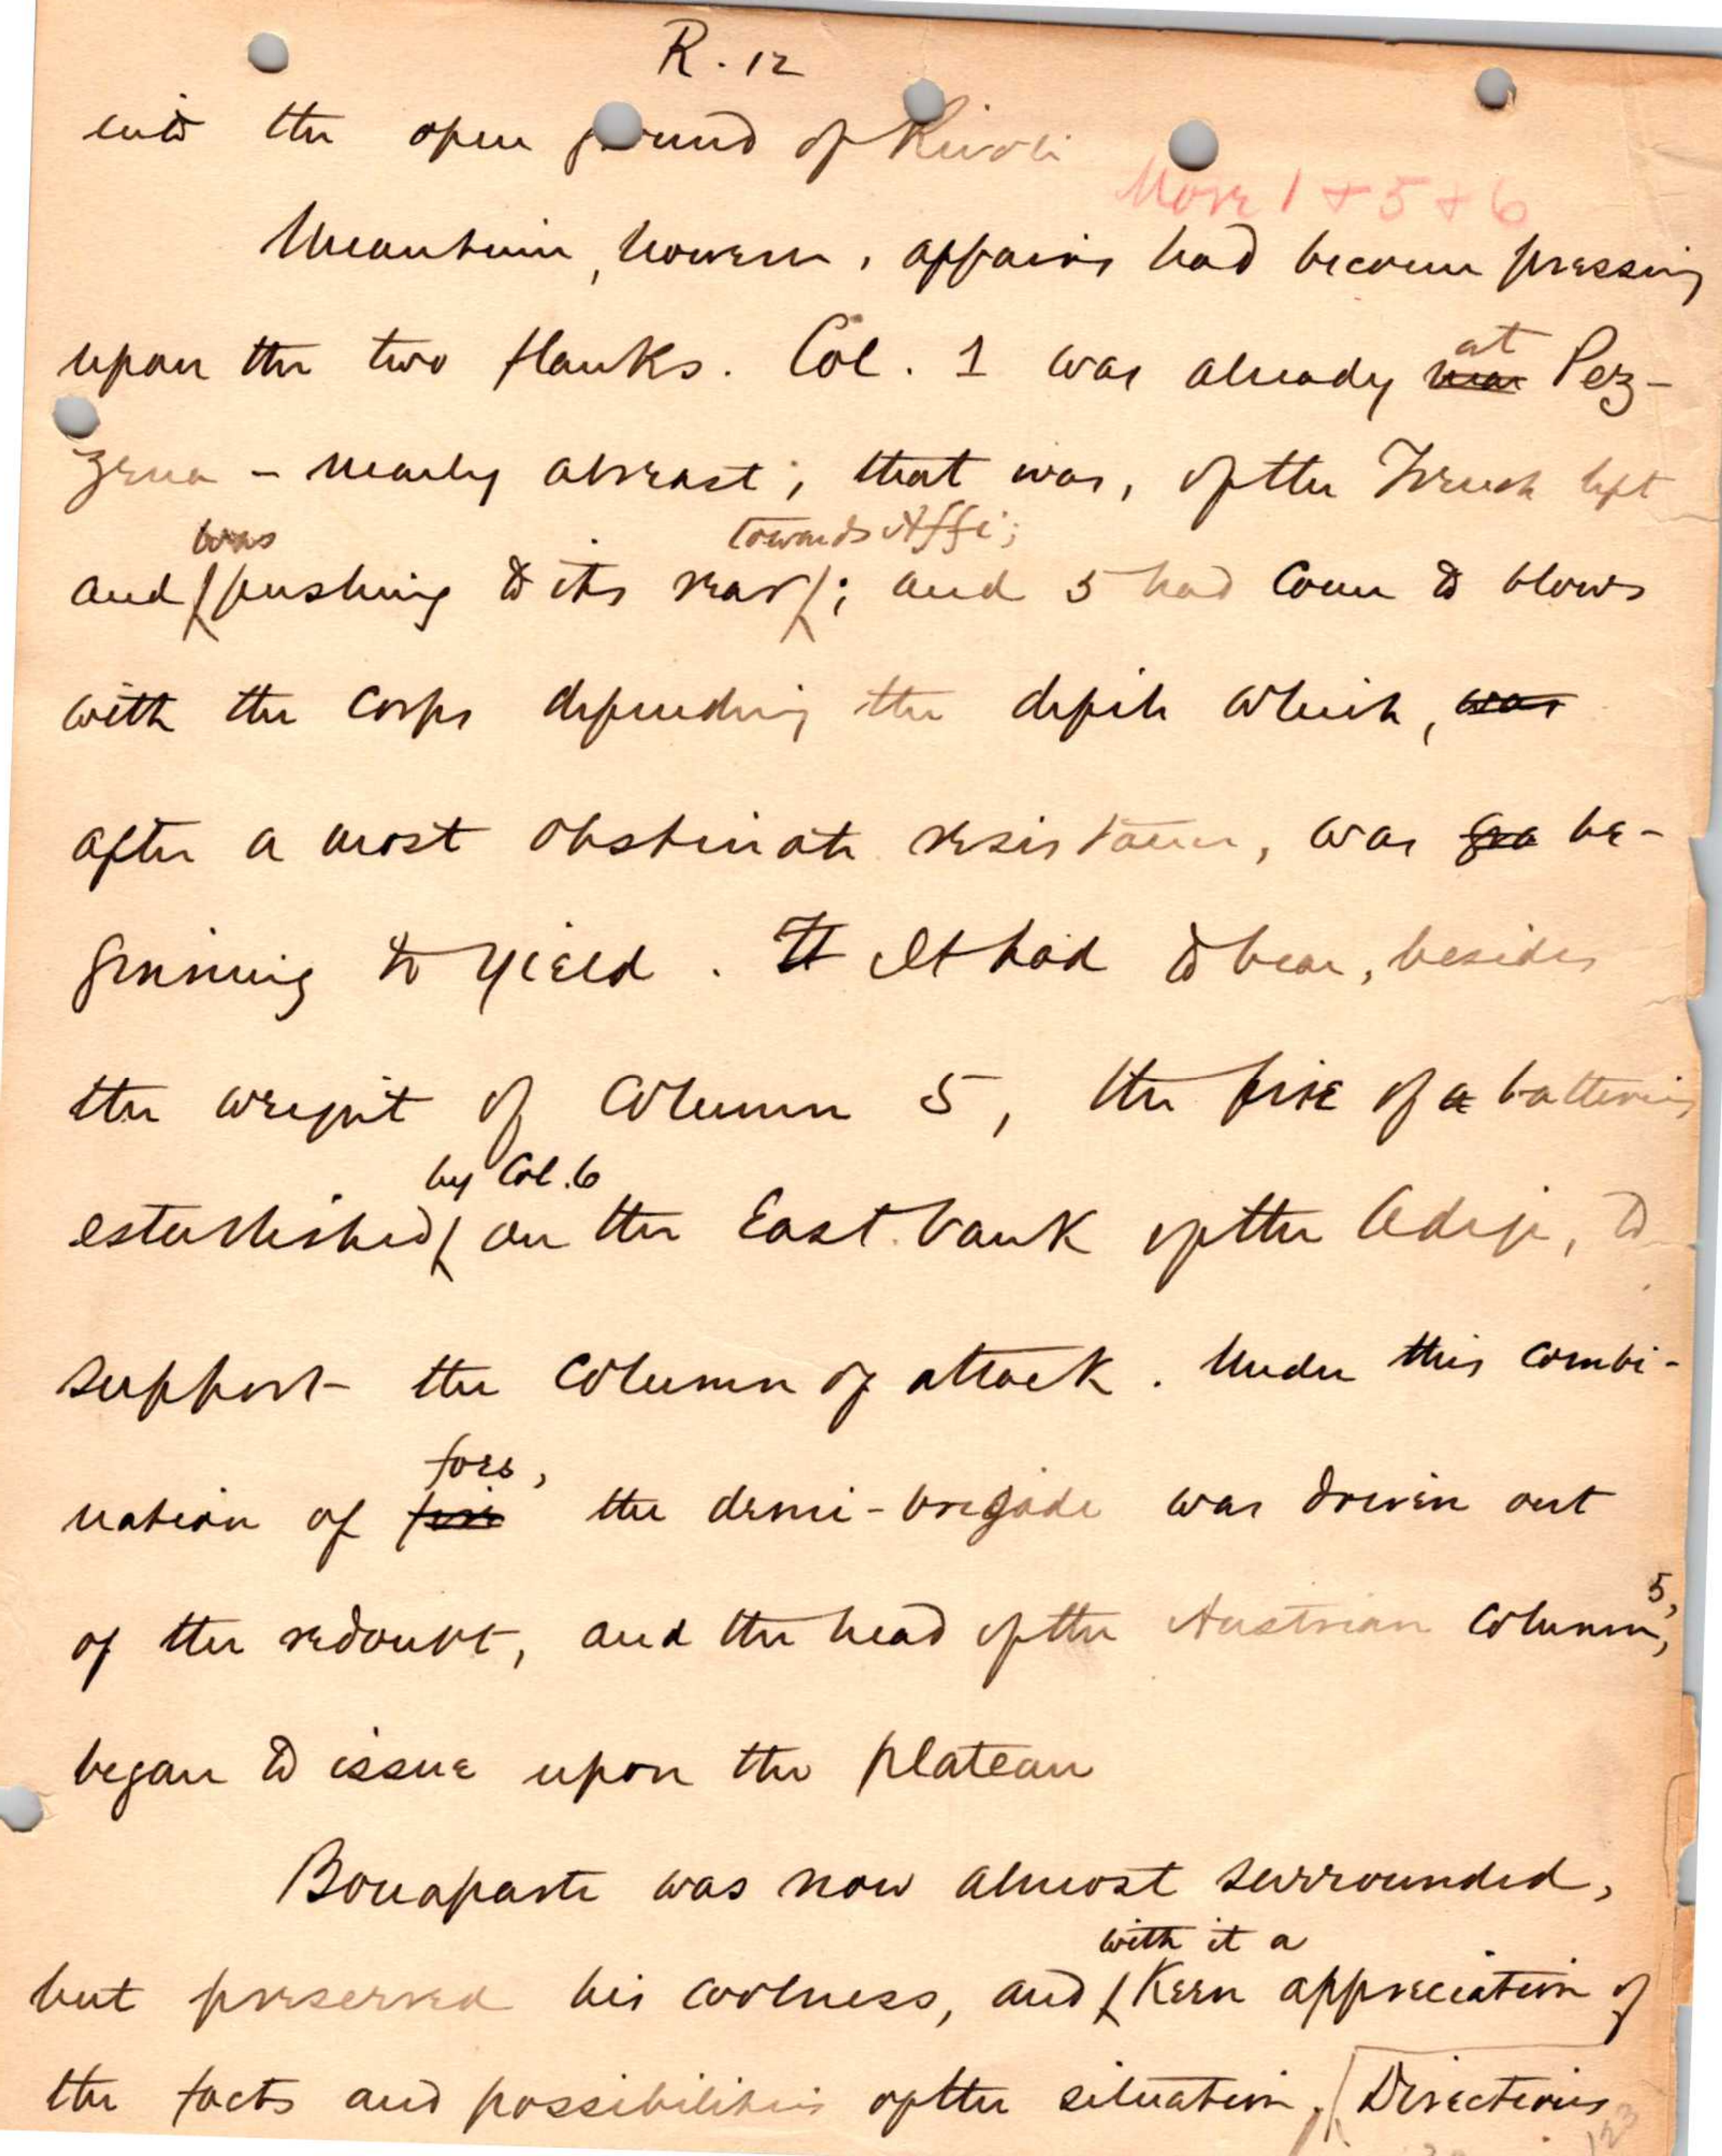 R. 12
into the open ground of Rivoli
Move 1 + 5 + 6
Meantime, however, affairs had become pressing
at
upon the two flanks. Col. 1 was already near Pez-
zena - nearly abreast, that was, of the French left
was towards Affi;
and pushing to its rear; and 5 had come to blows
with the corps defending the defile which, was
after a most obstinate resistance, was gra be-
ginning to yield. It It had to bear, besides
the weight of Column 5, the fire of a batteries
by Col. 6
established on the East bank of the Adige, to
support the column of attack. Under this combi-
foes,
nation of fire the demi-brigade was driven out
5,
of the redoubt, and the head of the Austrian column,
began to issue upon the plateau
Bonaparte was now almost surrounded,
with it a
but preserved his coolness, and keen appreciation of
the facts and possibilities of the situation. Directions
123